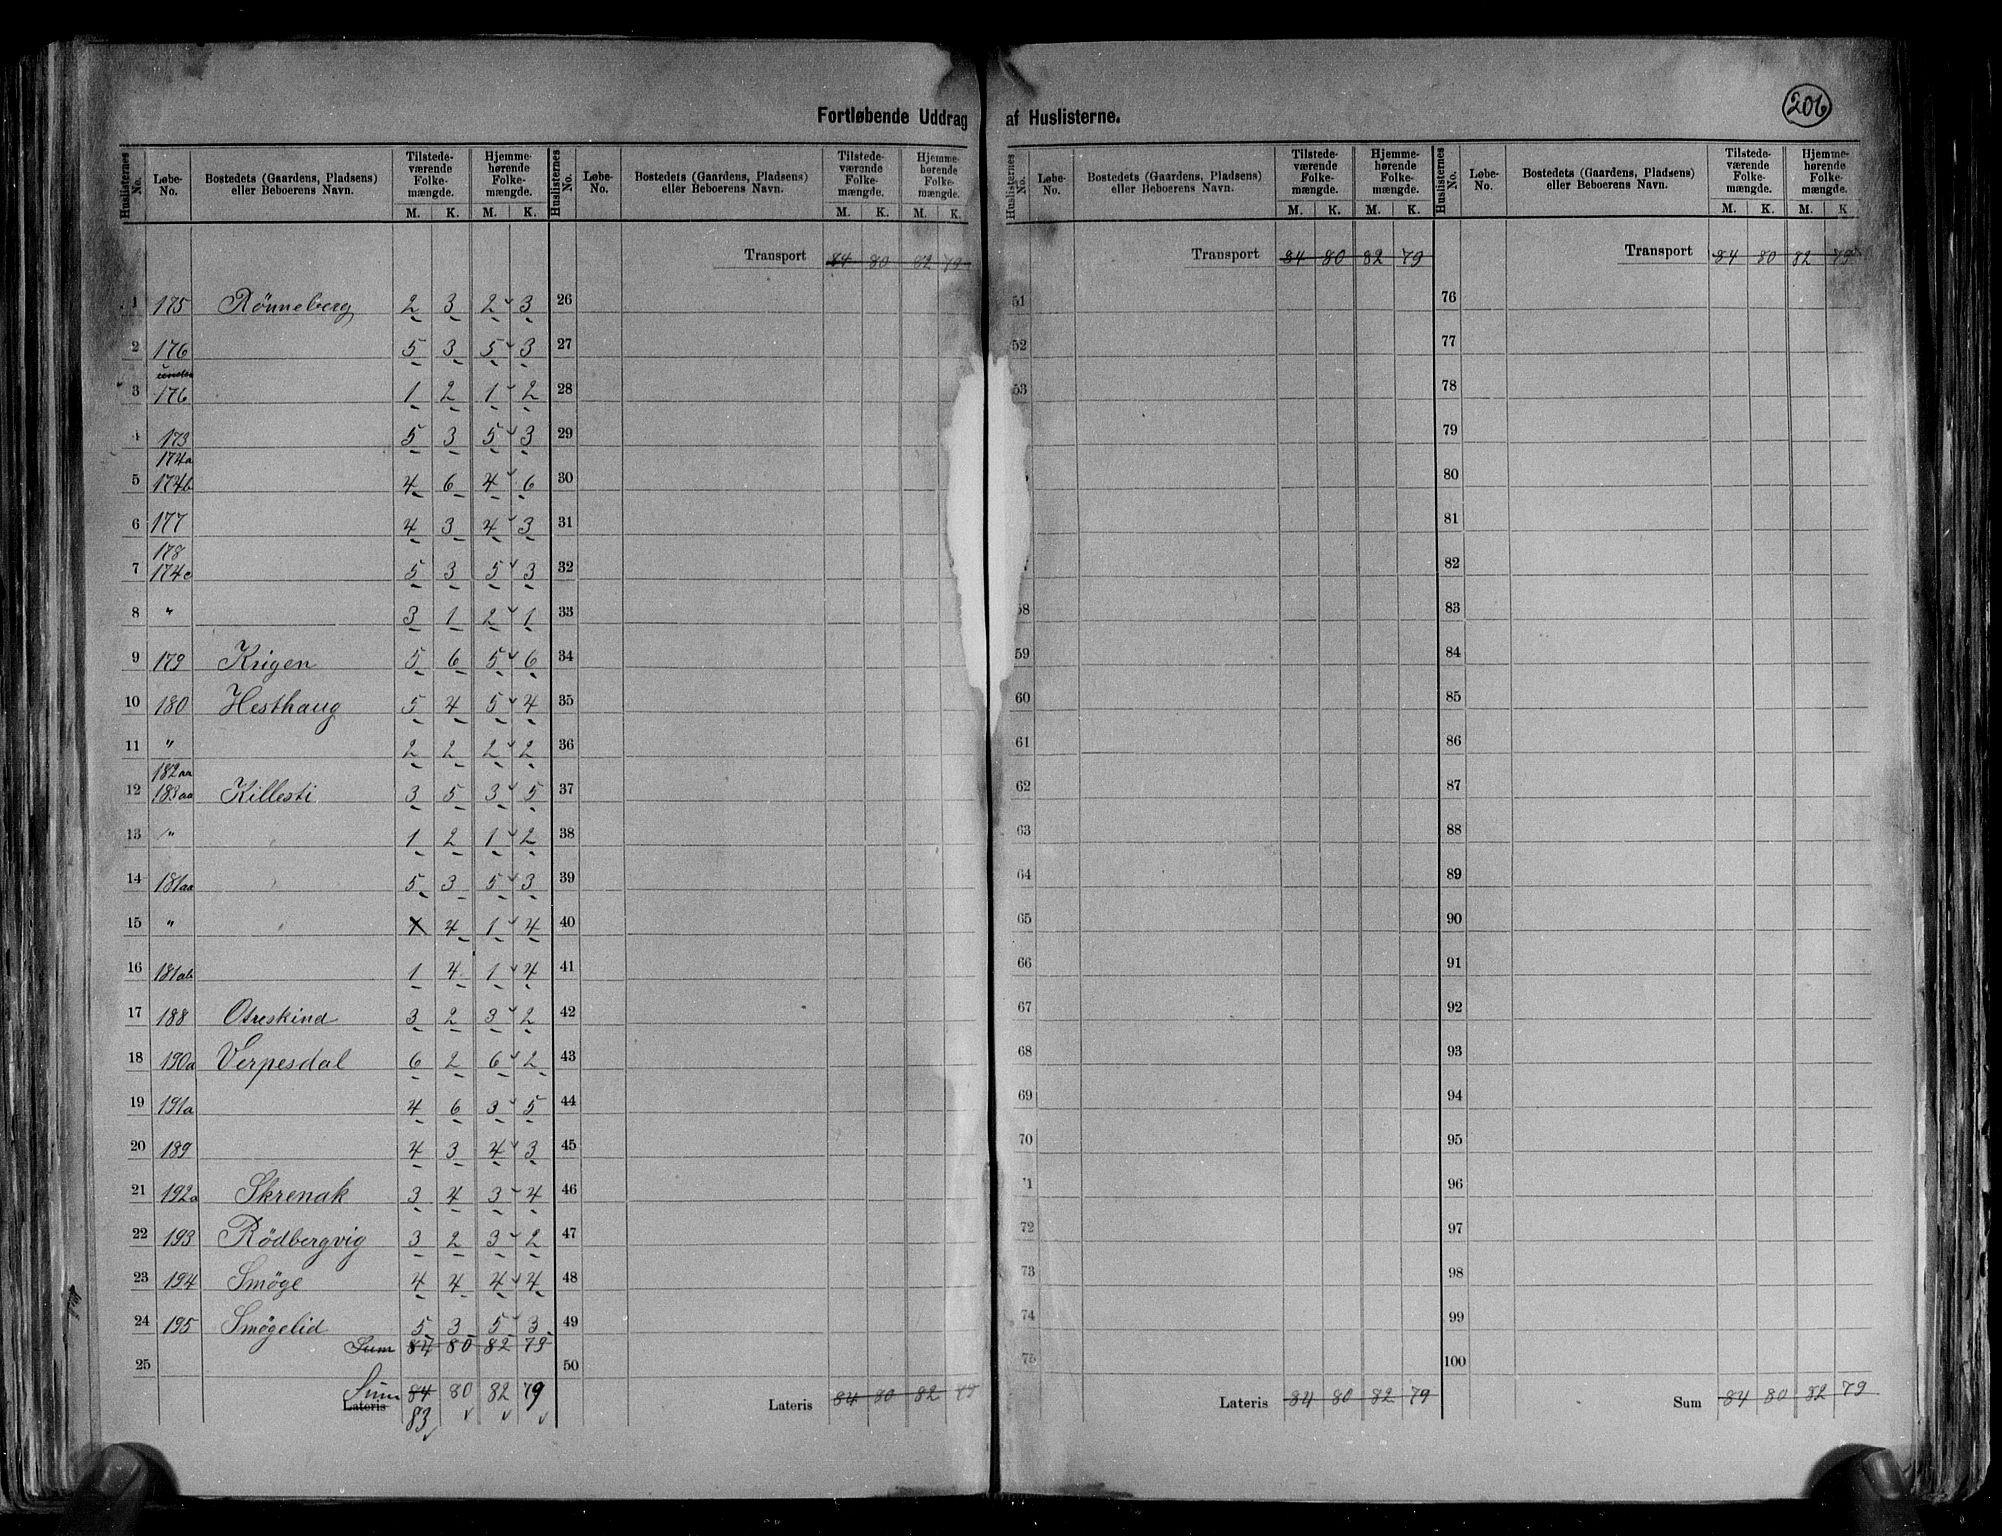 206
Fortløbende Uddrag af Huslisterne.
Huslisternes No. Løbe-No. Bostedets (Gaardens, Pladsens) eller Beboerens Navn. Tilstede-værende Folke-mængde. M. K. Hjemme-hørende Folke-mængde. M. K.
Huslisternes No. Løbe-No. Bostedets (Gaardens, Pladsens) eller Beboerens Navn. Tilstede-værende Folke-mængde. M. K. Hjemme-hørende Folke-mængde. M. K.
Huslisternes No. Løbe-No. Bostedets (Gaardens, Pladsens) eller Beboerens Navn. Tilstede-værende Folke-mængde. M. K. Hjemme-hørende Folke-mængde. M. K.
Huslisternes No. Løbe-No. Bostedets (Gaardens, Pladsens) eller Beboerens Navn. Tilstede-værende Folke-mængde. M. K. Hjemme-hørende Folke-mængde. M. K.
1 175 Rönneberg 2 3 2 3
2 176 5 3 5 3
under
3 176 1 2 1 2
4 173 5 3 5 3
174a
5 174b 4 6 4 6
6 177 4 3 4 3
178
7 174c 5 3 5 3
8 " 3 1 2 1
9 179 Krigen 5 6 5 6
10 180 Hesthaug 5 4 5 4
11 " 2 2 2 2
182aa
12 183aa Killesti 3 5 3 5
13 " 1 2 1 2
14 181aa 5 3 5 3
15 " 4 1 4
16 181ab 1 4 1 4
17 188 Otreskind 3 2 3 2
18 190a Verpesdal 6 2 6 2
19 191a 4 6 3 5
20 189 4 3 4 3
21 192a Skrenak 3 4 3 4
22 193 Rödbergvig 3 2 3 2
23 194 Smöge 4 4 4 4
24 195 Smögelid 5 3 5 3
Sum 84 80 82 79
25
Sum 84 80 82 79
Lateris 83
Transport 84 80 82 79
26
27
28
29
30
31
32
33
34
35
36
37
38
39
40
41
42
43
44
45
46
47
48
49
50
Lateris 84 80 82 79
Transport 84 80 82 79
51
52
53
58
59
60
61
62
63
64
65
66
67
68
69
70
71
72
73
74
75
Lateris 84 80 82 79
Transport 84 80 82 79
76
77
78
79
80
81
82
83
84
85
86
87
88
89
90
91
92
93
94
95
96
97
98
99
100
Sum 84 80 82 79